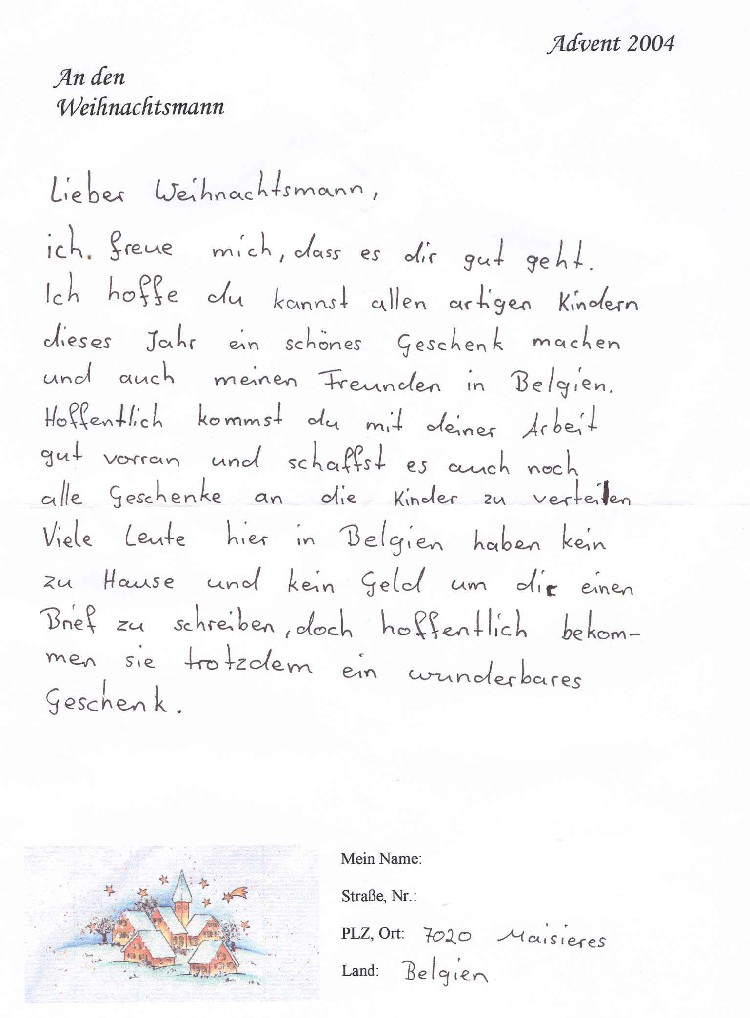 Advent 2004
An den
Weihnachtsmann
Lieber Weihnachtsmann,
ich. freue mich, dass es dir gut geht.
Ich hoffe du kannst allen artigen Kindern
dieses Jahr ein schönes Geschenk machen
und auch meinen Freunden in Belgien.
Hoffentlich kommst du mit deiner Arbeit
gut vorran und schaffst es auch noch
alle Geschenke an die Kinder zu verteilen
Viele Leute hier in Belgien haben kein
zu Hause und kein Geld um dir einen
Brief zu schreiben, doch hoffentlich bekom-
men sie trotzdem ein wunderbares
Geschenk.
Mein Name:
Straße, Nr.:
PLZ, Ort: 7020 Maisieres
Land: Belgien